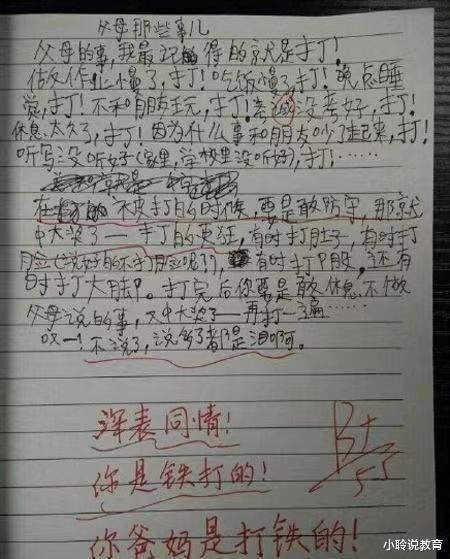 父母那些事儿
父母的事,我最记的得的就是打!
做作业慢了,打!吃饭慢了,打!晚点睡
觉,打!不和朋友玩,打!考试没考好,打!
休息太久了,打!因为什么事和朋友吵了起来,打!
听写没听好(家里,学校里没听好),打!……
在 被打的时候,要是敢防守,那就
中大奖了——打的更狂,有时打肚子,有时打
脸(说好的不打脸呢?),有时打P股,还有
时打大腿。打完后你要是敢休息不做
父母说的事,又中大奖了——再打一遍
哎—!不说了,说多了都是泪啊。
深表同情!
你是铁打的!
你爸妈是打铁的!
B+
小聆说教育